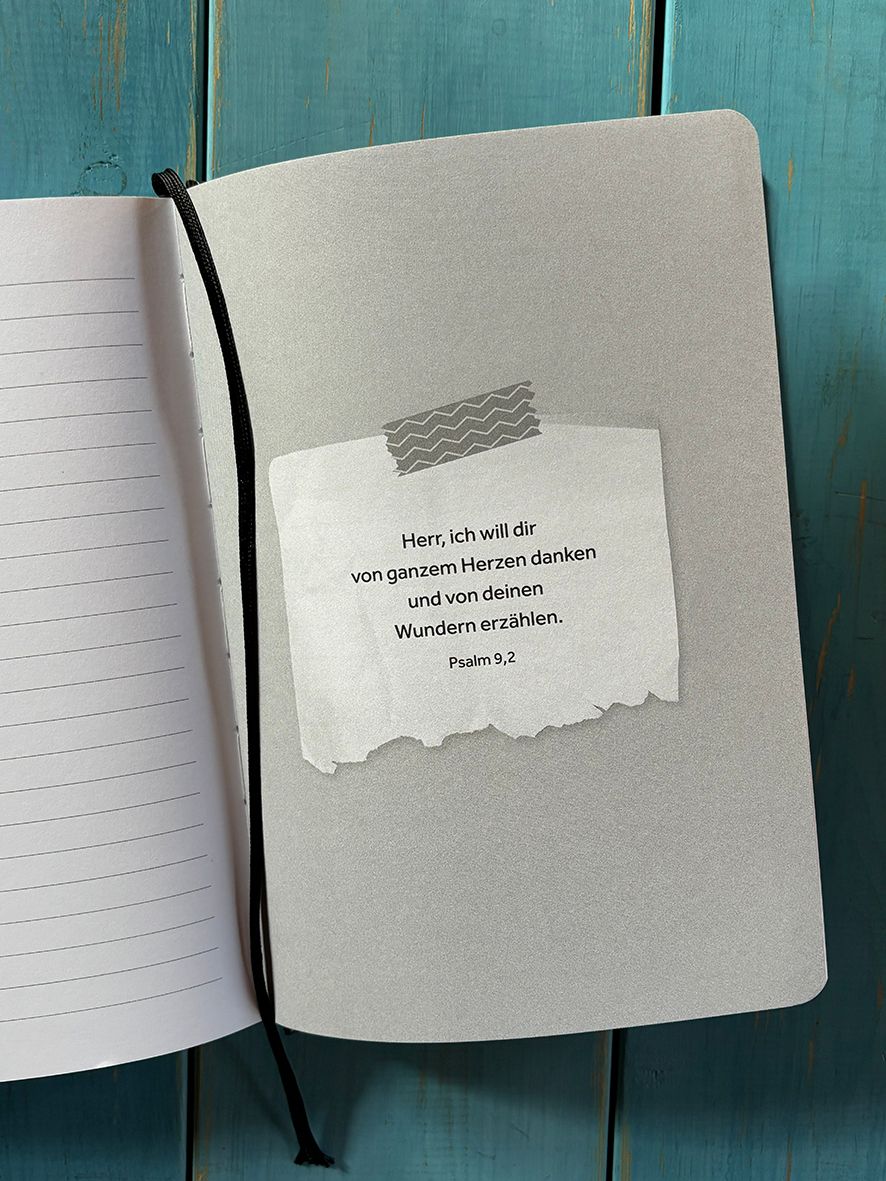 Herr, ich will dir
von ganzem Herzen danken
und von deinen
Wundern erzählen.
Psalm 9,2